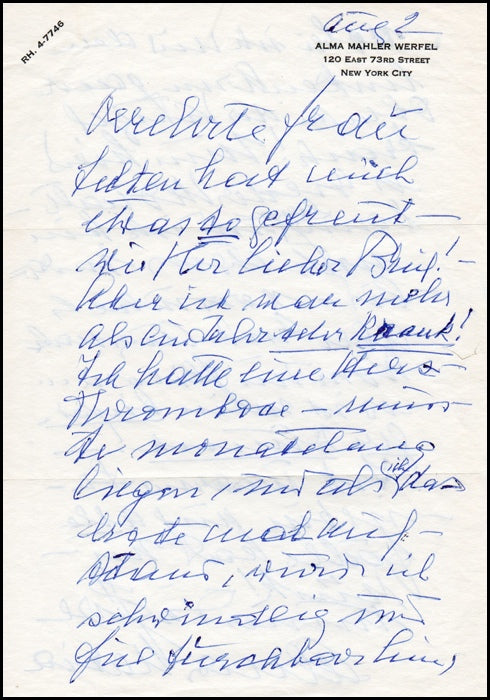 Aug 2
RH. 4-7746
ALMA MAHLER WERFEL
120 EAST 73RD STREET
NEW YORK CITY
Verehrte Frau
Selten hat mich
etwas so gefreut –
wie Ihr lieber Brief! –
Aber ich war mehr
als ein Jahr sehr krank!
Ich hatte eine Herz-
Thrombose – muss
te monatelang
liegen und als ich das
erste mal auf-
stand, wurde ich
schwindlig und
fiel furchtbar hin,